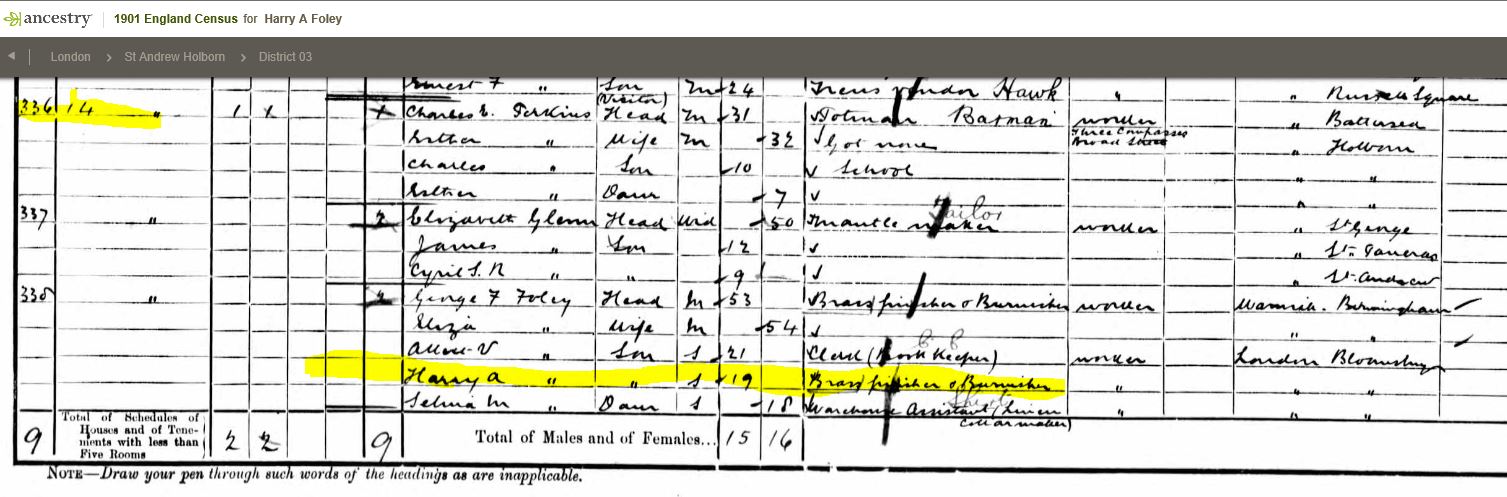 ancestry 1901 England Census for Harry A Foley
London > St Andrew Holborn > District 03
Ernest F " Son M 24 Hawk " " Russell Square
(Visitor)
336 14 " 1 X X Charles E. Perkins Head M 31 Potman Barman worker " Battersea
Esther " Wife M 32 Got none Three Compasses Broad Street " Holborn
Charles " Son 10 School " "
Esther " Daur 7 " "
Tailor
337 " 2 Elizabeth Glenn Head Wid 50 Mantle maker worker " St George
James " Son 12 " St. Pancras
Cyril S. R " " 9 " St. Andrew
338 " 2 George F Foley Head M 53 Brass finisher & Burnisher worker Warwick. Birmingham
Eliza " Wife M 54 " "
" Son S 21 Clerk (Book Keeper) worker London Bloomsbury
Harry A " " S 19 Brass finisher & Burnisher " " "
Selina M " Daur S 18 Warehouse Assistant (Linen " " "
Collar maker)
9 Total of Schedules of Houses and of Tenements with less than Five Rooms 2 2 9 Total of Males and of Females... 15 16
NOTE—Draw your pen through such words of the headings as are inapplicable.